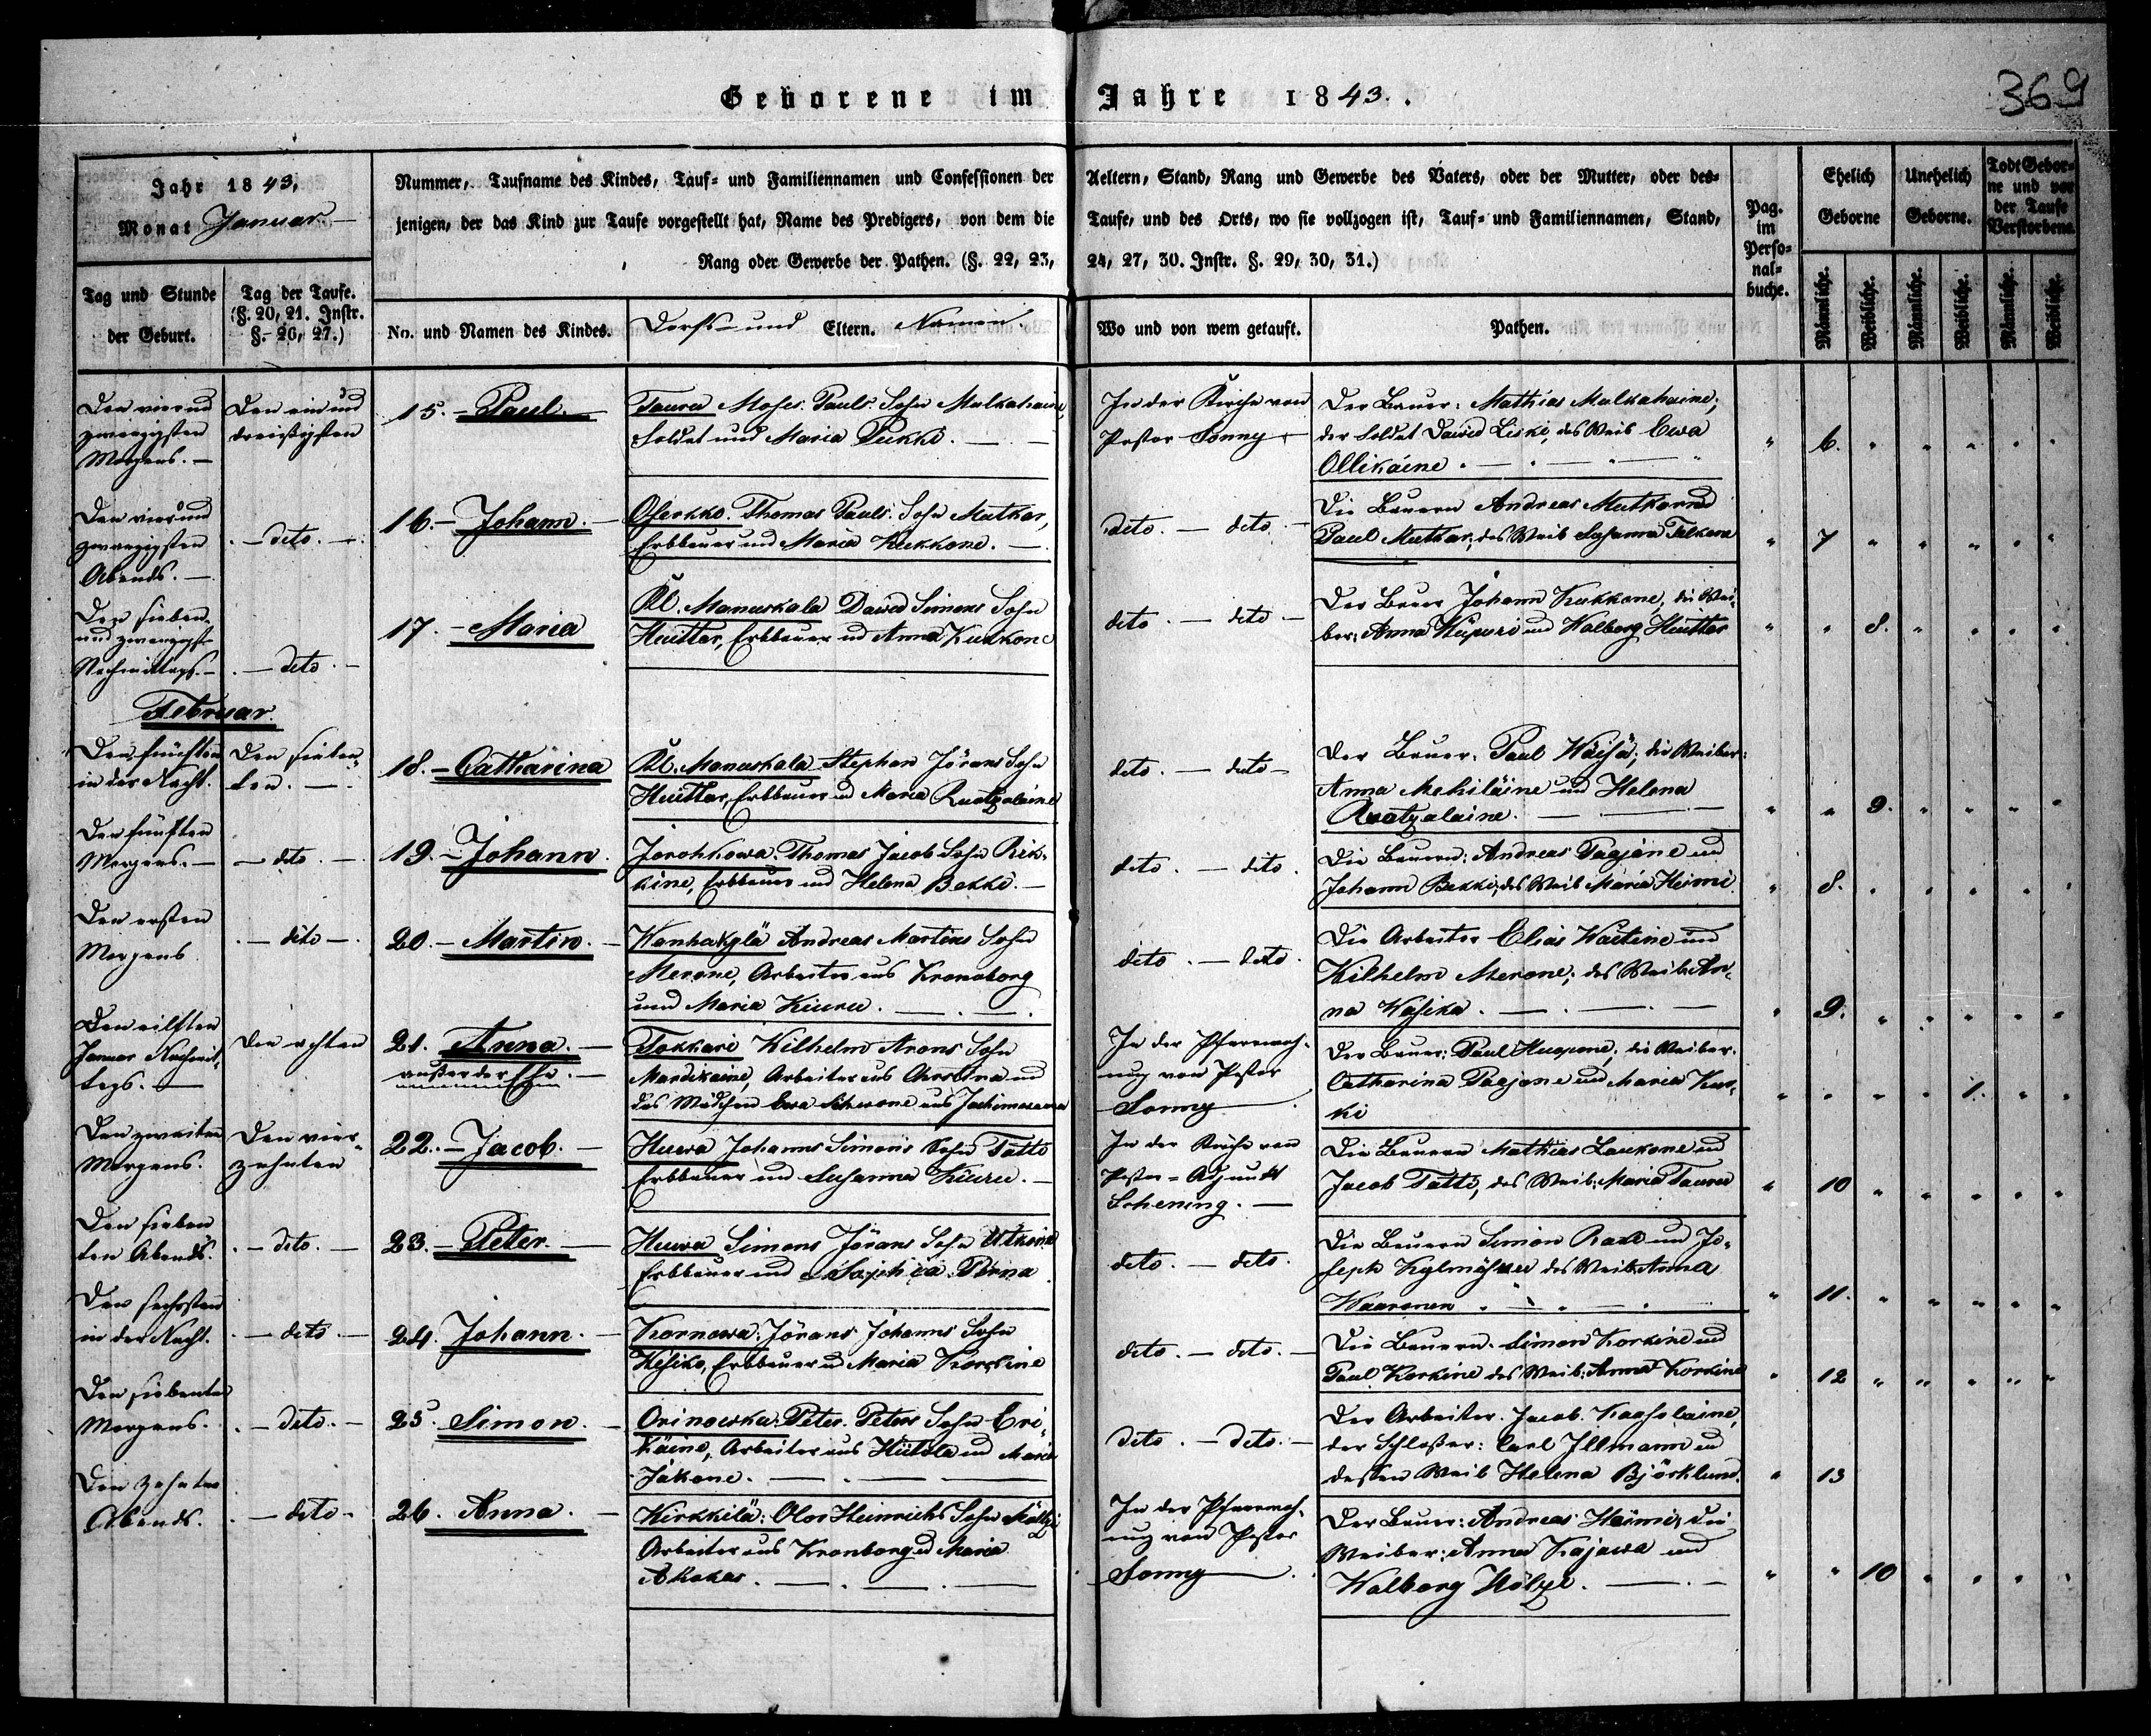 Geborene im Jahre 1843.
369
Jahr 1843,
Monat Januar.
Nummer, Taufname des Kindes, Tauf- und Familiennamen und Confessionen der Aeltern, Stand, Rang und Gewerbe des Vaters, oder der Mutter, oder des-
jenigen, der das Kind zur Taufe vorgestellt hat, Name des Predigers, von dem die Taufe, und des Orts, wo sie vollzogen ist, Tauf- und Familiennamen, Stand,
Rang oder Gewerbe der Pathen. (§. 22, 23, 24, 27, 30. Instr. §. 29, 30, 31.)
Pag. im Perso-nal-buche.
Ehelich Geborne
Unehelich Geborne.
Todt Gebor-ne und vor der Taufe Verstorbene.
Tag und Stunde der Geburt.
Tag der Taufe. (§. 20, 21. Instr. §. 26, 27.)
No. und Namen des Kindes.
Dorfs- und Eltern. Namen.
Wo und von wem getauft.
Pathen.
Männliche. Weibliche. Männliche. Weibliche. Männliche. Weibliche.
Den vierund
zwanzigsten
Morgens.
Den ein und
dreißigsten
15. Paul.
Tauru Moses Pauls Sohn
Soldat und Maria Pukki.
In der Kirche von
Pastor Sonny
Der Bauer: Mathias Malkahaine,
der Soldat David Liski, des Weib Ewa
Ollikaine.
6.
Den vierund
zwanzigsten
Abends.
dito.
16. Johann.
Oserkko. Thomas Pauls Sohn Mutkar,
Erbbauer und Maria Kukkone.
dito. dito.
Die Bauern Andreas Mutkar und
Paul Mutkar, des Weib Susanna
7
Den sieben
und zwanzigst
Nachmittags.
dito
17. Maria
Kl. Manuskala David Simons Sohn
Huittar, Erbbauer und Anna Kukkone
dito. dito
Der Bauer Johann Kukkone, die Wei-
ber: Anna und Walborg Huittar
8.
Februar.
Den fünften
in der Nacht.
Den sieben-
ten.
18. Catharina
Kl. Manuskala Stephan Jörans Sohn
Huittar, Erbbauer und Maria
dito. dito
Der Bauer. Paul Wäisä, die Weiber:
Anna Mehiläine und Helena
9.
Den fünften
Morgens.
dito.
19. Johann.
Thomas Jacob Sohn Rik-
kine, Erbbauer und Helena Bekki.
dito. dito.
Die Bauern: Andreas Pagjane und
Johann Bekki, des Weib Maria Heimi.
8.
Den ersten
Morgens
dito
20. Martin.
Andreas Martins Sohn
Merone, Arbeiter aus Kronoborg
und Maria Kiuru.
dito. dito.
Die Arbeiter Elias und
Wilhelm Merone, des Weib An-
na Kasika
9.
Den eilften
Januar Nachmit-
tags.
Den achten
21. Anna.
außer der Ehe.
Tokkari Wilhelm Arons Sohn
Mardikaine, Arbeiter aus und
das Mädchen Ewa aus
In der Pfarrwoh-
nung von Pastor
Sonny
Der Bauer: Paul Huopone, die Weiber.
Catharina Pagjane und Maria
ki
1.
Den zweiten
Morgens.
Den vier-
zehnten
22. Jacob.
Huwa Johanns Simons Sohn Tatti
Erbbauer und Susanna Kiuru.
In der Kirche von
Pastor-Adjunkt
Schening.
Die Bauern Mathias Laukone und
Jacob Tatti, des Weib: Maria Tauru
10
Den sieben
ten Abends.
dito.
23. Peter.
Huwa Simons Jörans Sohn
Erbbauer und Sophia Pinna
dito. dito.
Die Bauern Simon und Jo-
seph des Weib Anna
Kaaronen
11.
Den sechsten
in der Nacht.
dito.
24. Johann.
Kornowa: Jörans Johanns Sohn
Erbbauer und Maria Korkine
dito. dito.
Die Bauern. Simon Korkine und
Paul Korkine des Weib: Anna Korkine
12
Den siebenten
Morgens.
dito.
25. Simon.
Orinowka: Peter. Peters Sohn Eri-
käine, Arbeiter aus Hiitola und Maria
Jäkone.
dito. dito.
Der Arbeiter. Jacob.
der Schloßer: Carl Illmann und
dessen Weib Helena Björklund.
13
Den zehnten
Abends.
dito
26. Anna.
Kirkkilä: Olof Heinrichs Sohn
Arbeiter aus Kronborg und Maria
Akakas.
In der Pfarrwoh-
nung von Pastor
Sonny
Der Bauer: Andreas Heimi, die
Weiber: Anna Kajawa und
Walborg Hölzi.
10